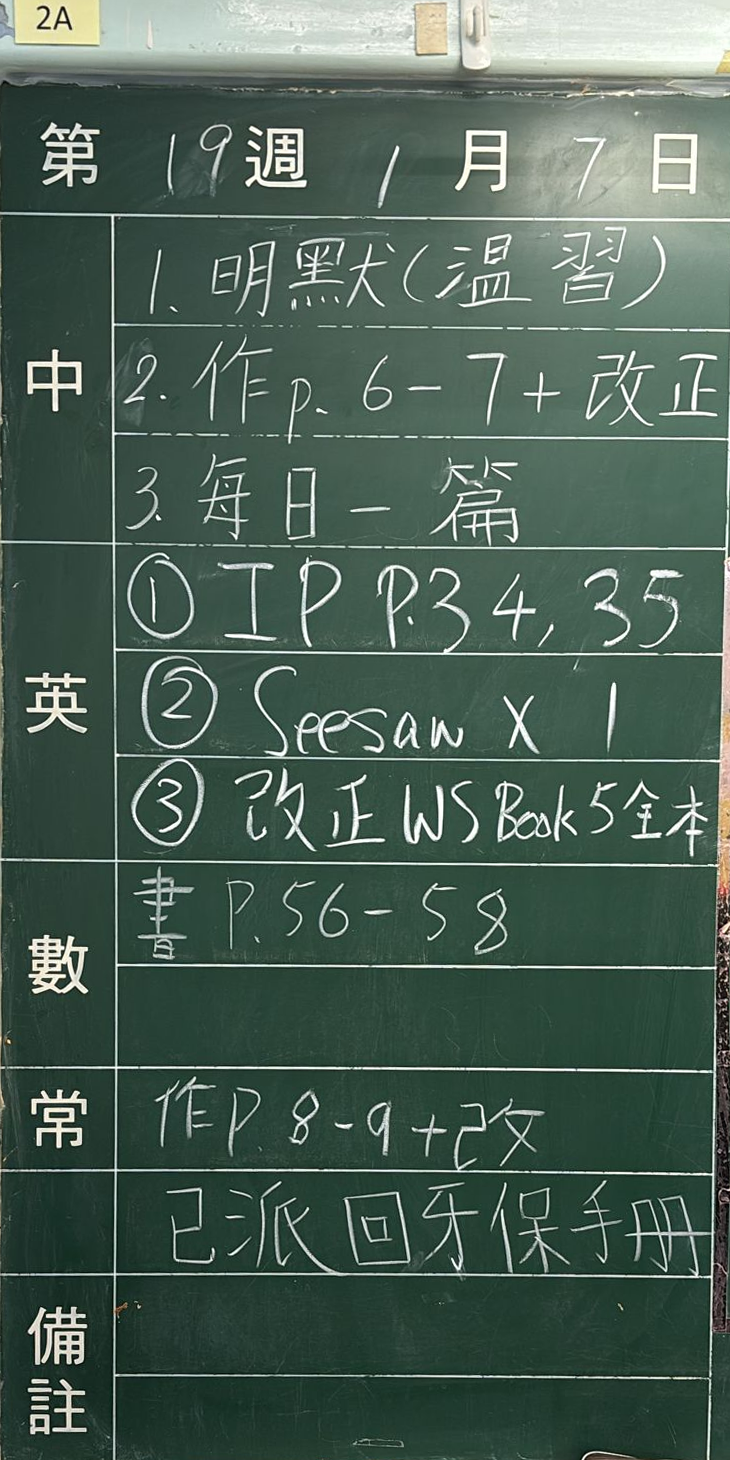 2A
第 19 週 1 月 7 日
中
1. 明默(温習)
2. 作p. 6-7+改正
3. 每日一篇
英
① IP P.34, 35
② Seesaw X 1
③ 改正 WS Book 5 全本
數
書 P.56-58
常
作P. 8-9+改
已派回牙保手册
備註